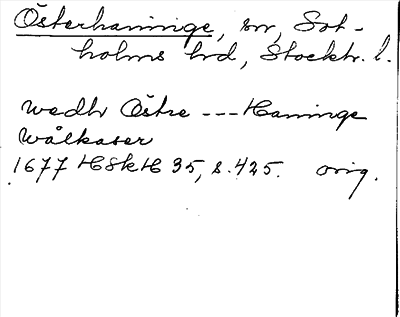 Österhaninge, sn, Sot-
holms hd, Stockh. l.
wedh Östre --- Haninge
wålkaser
1677 HSkH 35, s. 425. orig.